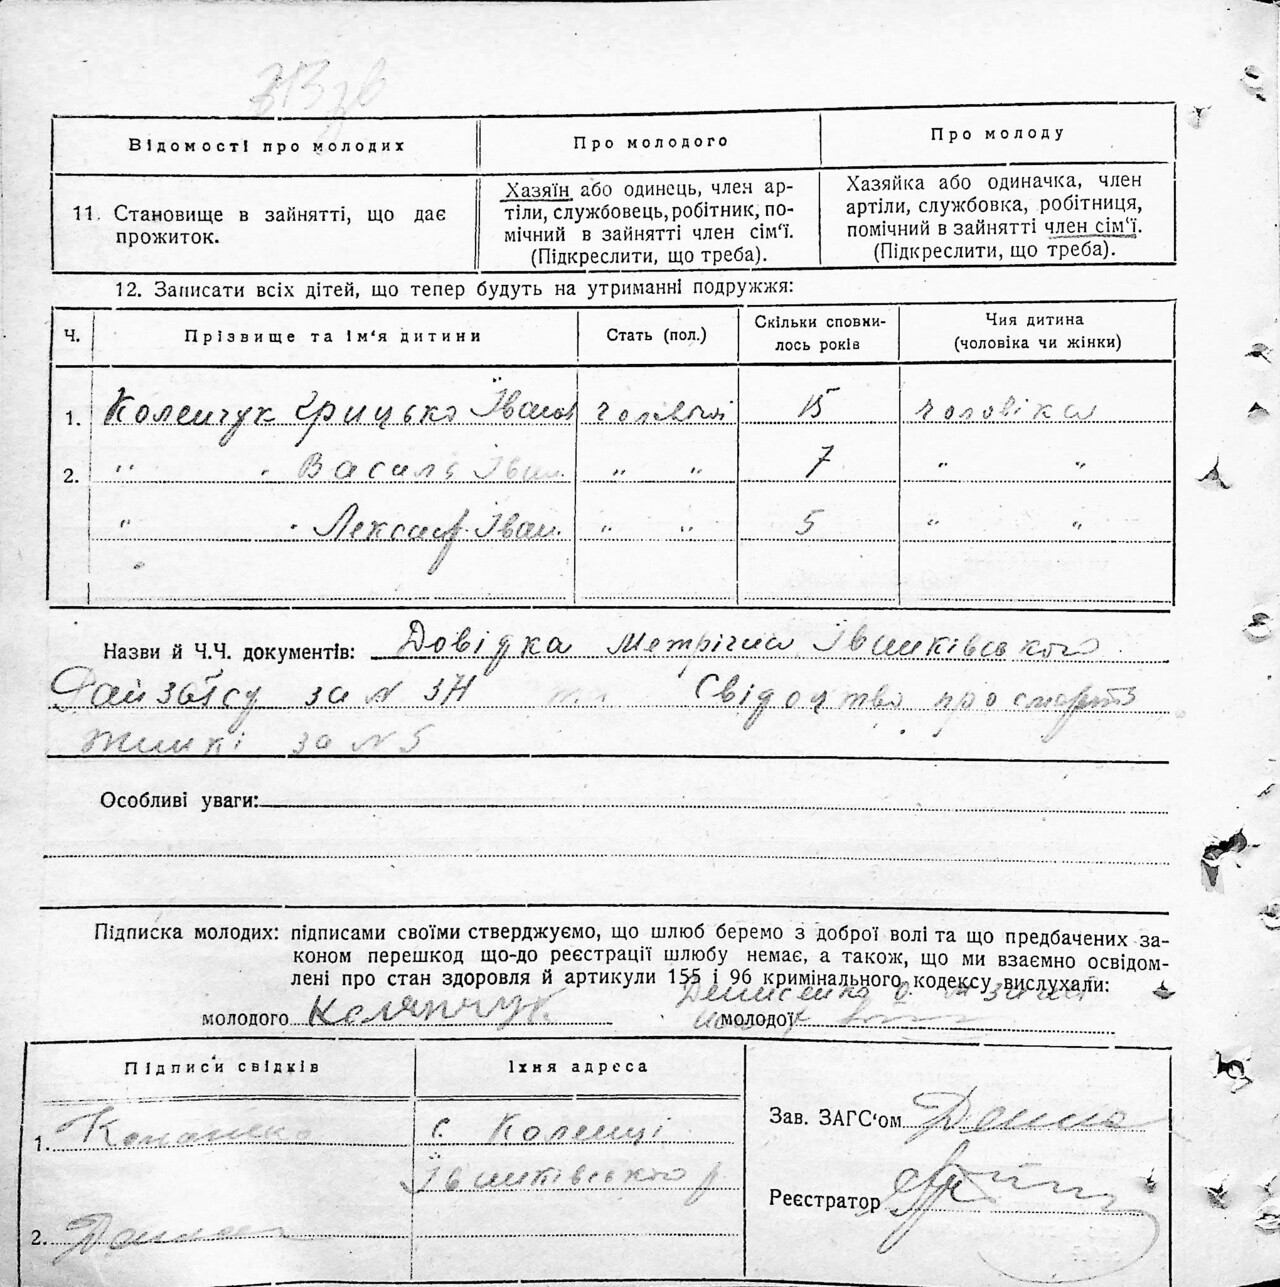 Відомості про молодих
Про молодого
Про молоду
11. Становище в зайнятті, що дає
прожиток.
Хазяїн або одинець, член ар-
тіли, службовець, робітник, по-
мічний в зайнятті член сім'ї.
(Підкреслити, що треба).
Хазяйка або одиначка, член
артіли, службовка, робітниця,
помічний в зайнятті член сім'ї.
(Підкреслити, що треба).
12. Записати всіх дітей, що тепер будуть на утриманні подружжя:
Ч.
Прізвище та ім'я дитини
Стать (пол.)
Скільки сповни-
лось років
Чия дитина
(чоловіка чи жінки)
1. Коленчук Грицько Іванов 15 чоловіка
2. " " Василь Іван. " " 7 " "
" " Лександ. Іван. " " 5 " "
Назви й Ч.Ч. документів: Довідка Метрічна Іванківського
за № та Свідоцтво про смерть
жинкі за № 5
Особливі уваги:
Підписка молодих: підписами своїми стверджуємо, що шлюб беремо з доброї волі та що предбачених за-
коном перешкод що-до реєстрації шлюбу немає, а також, що ми взаємно освідом-
лені про стан здоровля й артикули 155 і 96 кримінального кодексу вислухали:
Денисенко
молодого Колянчук молодої
Підписи свідків
Їхня адреса
1.
с. Коленці
Іванківського р
2.
Зав. ЗАГС'ом
Реєстратор